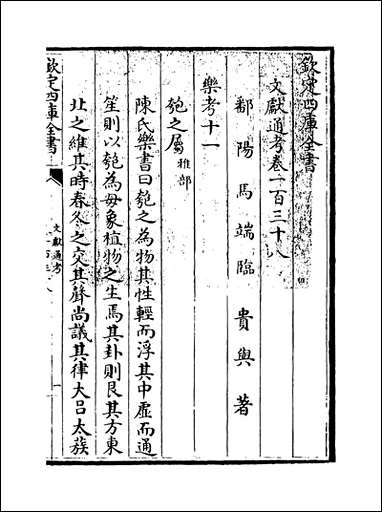 欽定四庫全書
文獻通考卷一百三十八
鄱陽馬端臨貴與著
樂考十一
匏之屬雅部
陳氏樂書曰匏之為物其性輕而浮其中虛而通
笙則以匏為母象植物之生焉其卦則艮其方東
北之維其時春冬之交其聲尚議其律大吕太蔟
欽定四庫全書
文獻通考
一